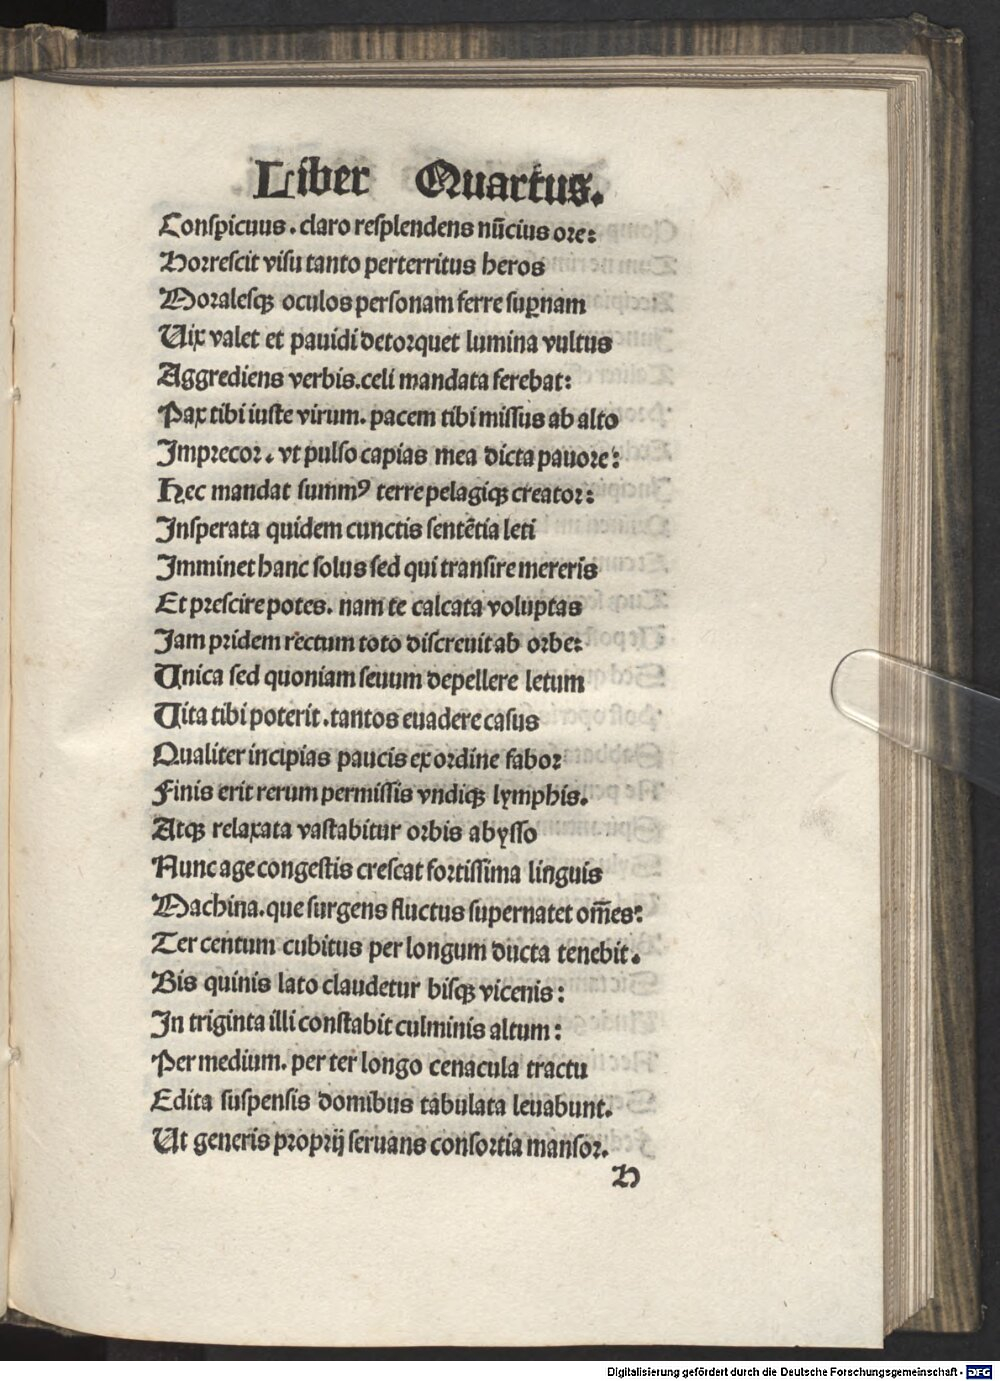 Liber Quartus.
Conspicuus. claro resplendens nũcius ore:
Horrescit visu tanto perterritus heros
Moralesqꝫ oculos personam ferre suꝑnam
Uix valet et pauidi detorquet lumina vultus
Aggrediens verbis.celi mandata ferebat:
Pax tibi iuste virum. pacem tibi missus ab alto
Imprecor. vt pulso capias mea dicta pauore:
Hec mandat summꝰ terre pelagiqꝫ creator:
Insperata quidem cunctis sentẽtia leti
Imminet hanc solus sed qui transire mereris
Et prescire potes. nam te calcata voluptas
Iam pridem rectum toto discreuit ab orbe:
Unica sed quoniam seuum depellere letum
Uita tibi poterit.tantos euadere casus
Qualiter incipias paucis ex ordine fabor
Finis erit rerum permissis vndiqꝫ lymphis.
Atqꝫ relaxata vastabitur orbis abysso
Nunc age congestis crescat fortissima linguis
Machina.que surgens fluctus supernatet om̃es:
Ter centum cubitus per longum ducta tenebit.
Bis quinis lato claudetur bisqꝫ vicenis:
In triginta illi constabit culminis altum:
Per medium. per ter longo cenacula tractu
Edita suspensis domibus tabulata leuabunt.
Ut generis proprij seruans consortia mansor.
H
Digitalisierung gefördert durch die Deutsche Forschungsgemeinschaft - DFG